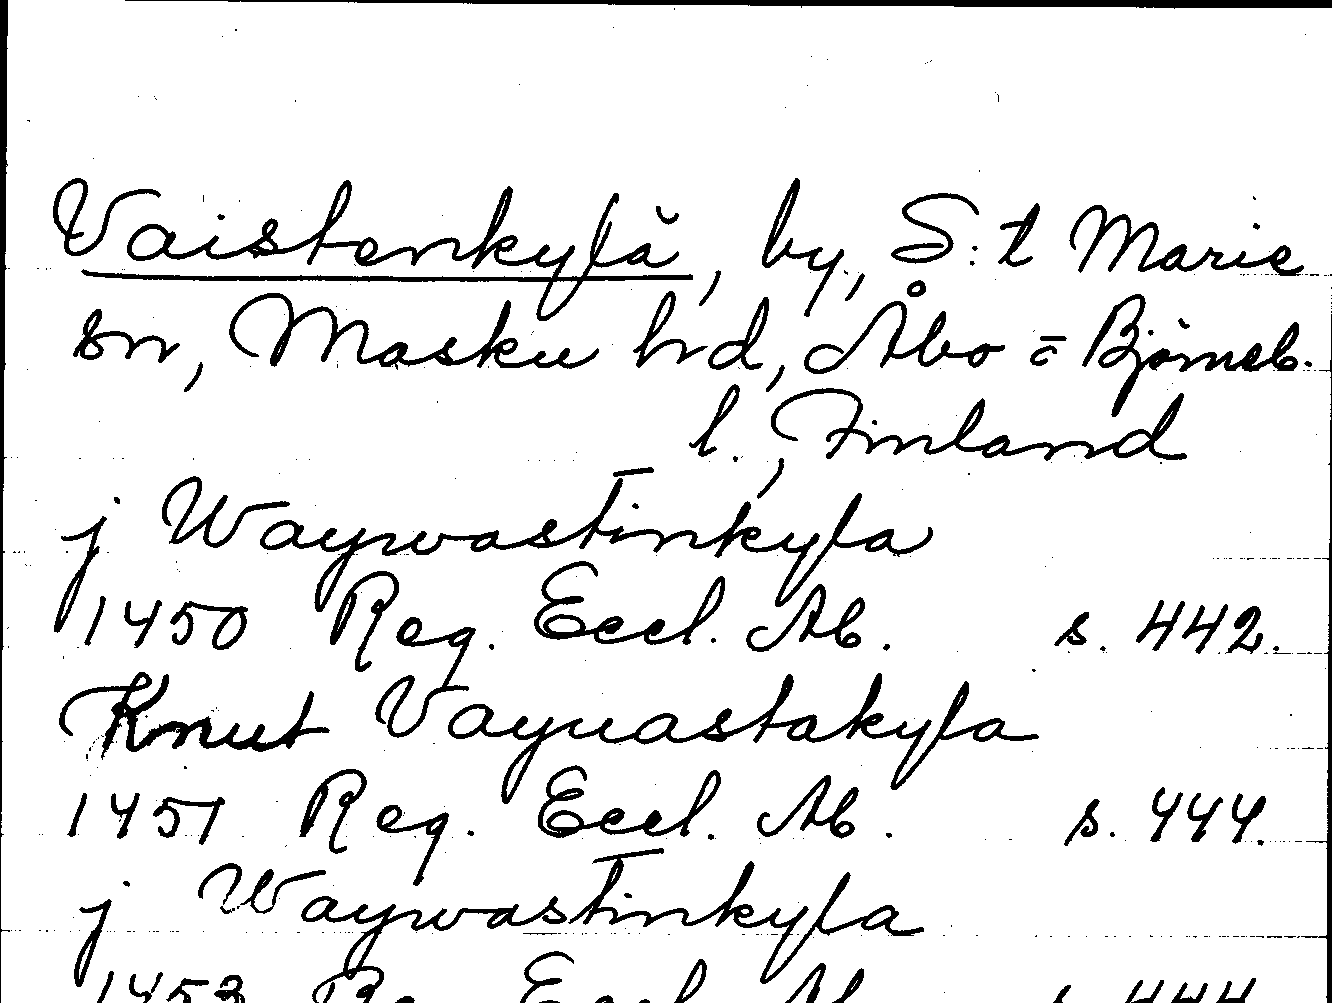 Vaistenkylä, by, S:t Marie
sn, Masku hd, Åbo = Björneb.
l., Finland
j Waywastinkyla
1450 Reg. Eccl. Ab. s. 442.
Knut Vayuastakyla
1451 Reg. Eccl. Ab. s. 444.
j Waywastinkyla
1453 Reg. Eccl. Ab. s. 444.